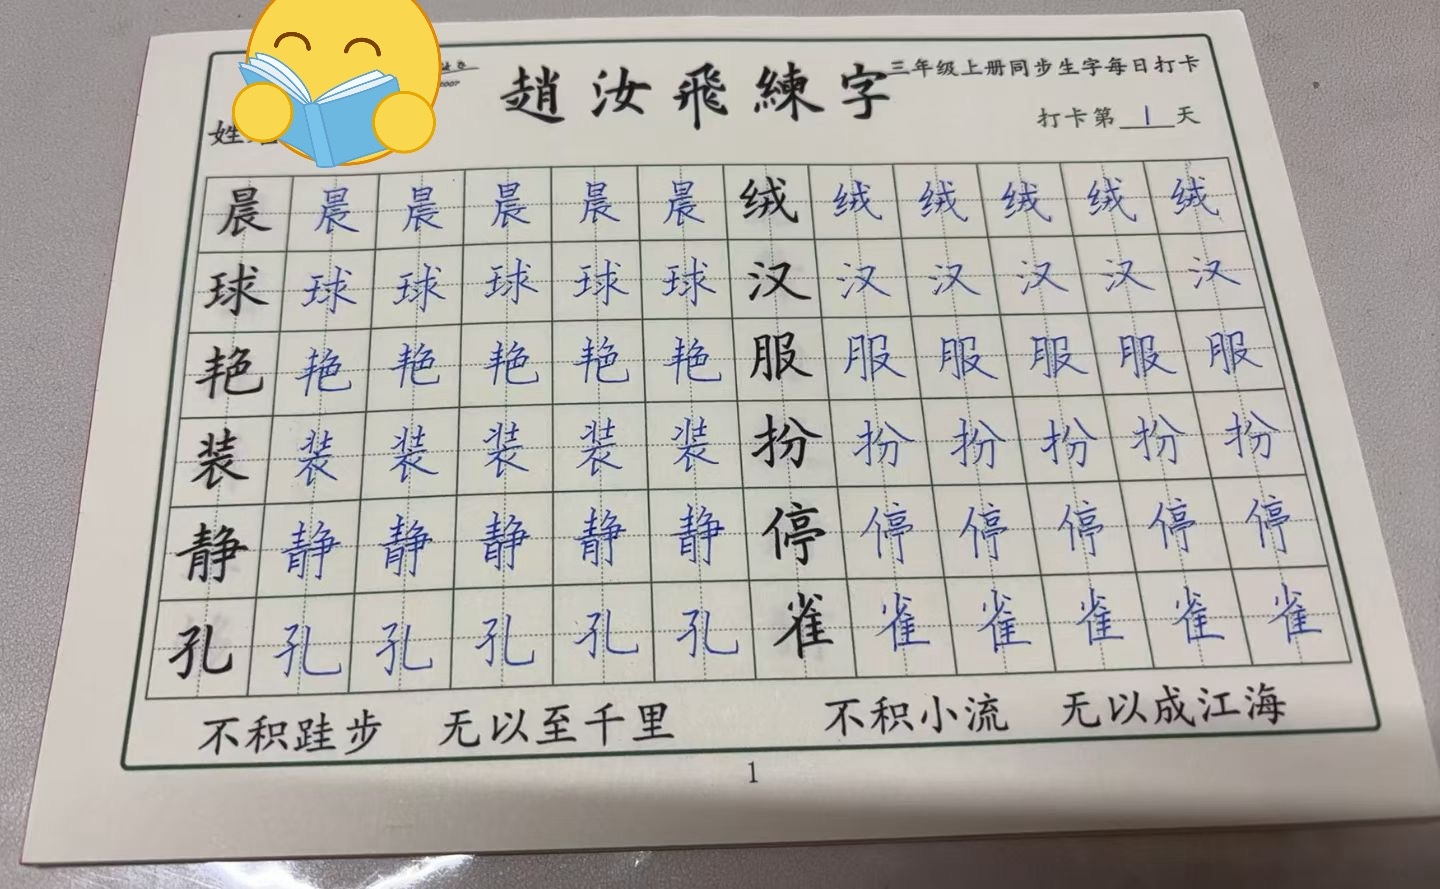 趙汝飛練字
三年级上册同步生字每日打卡
姓
打卡第1天
晨晨晨晨晨晨绒绒绒绒绒绒
球球球球球球汉汉汉汉汉汉
艳艳艳艳艳艳服服服服服服
装装装装装装扮扮扮扮扮扮
静静静静静静停停停停停停
孔孔孔孔孔孔雀雀雀雀雀雀
不积跬步 无以至千里 不积小流 无以成江海
1